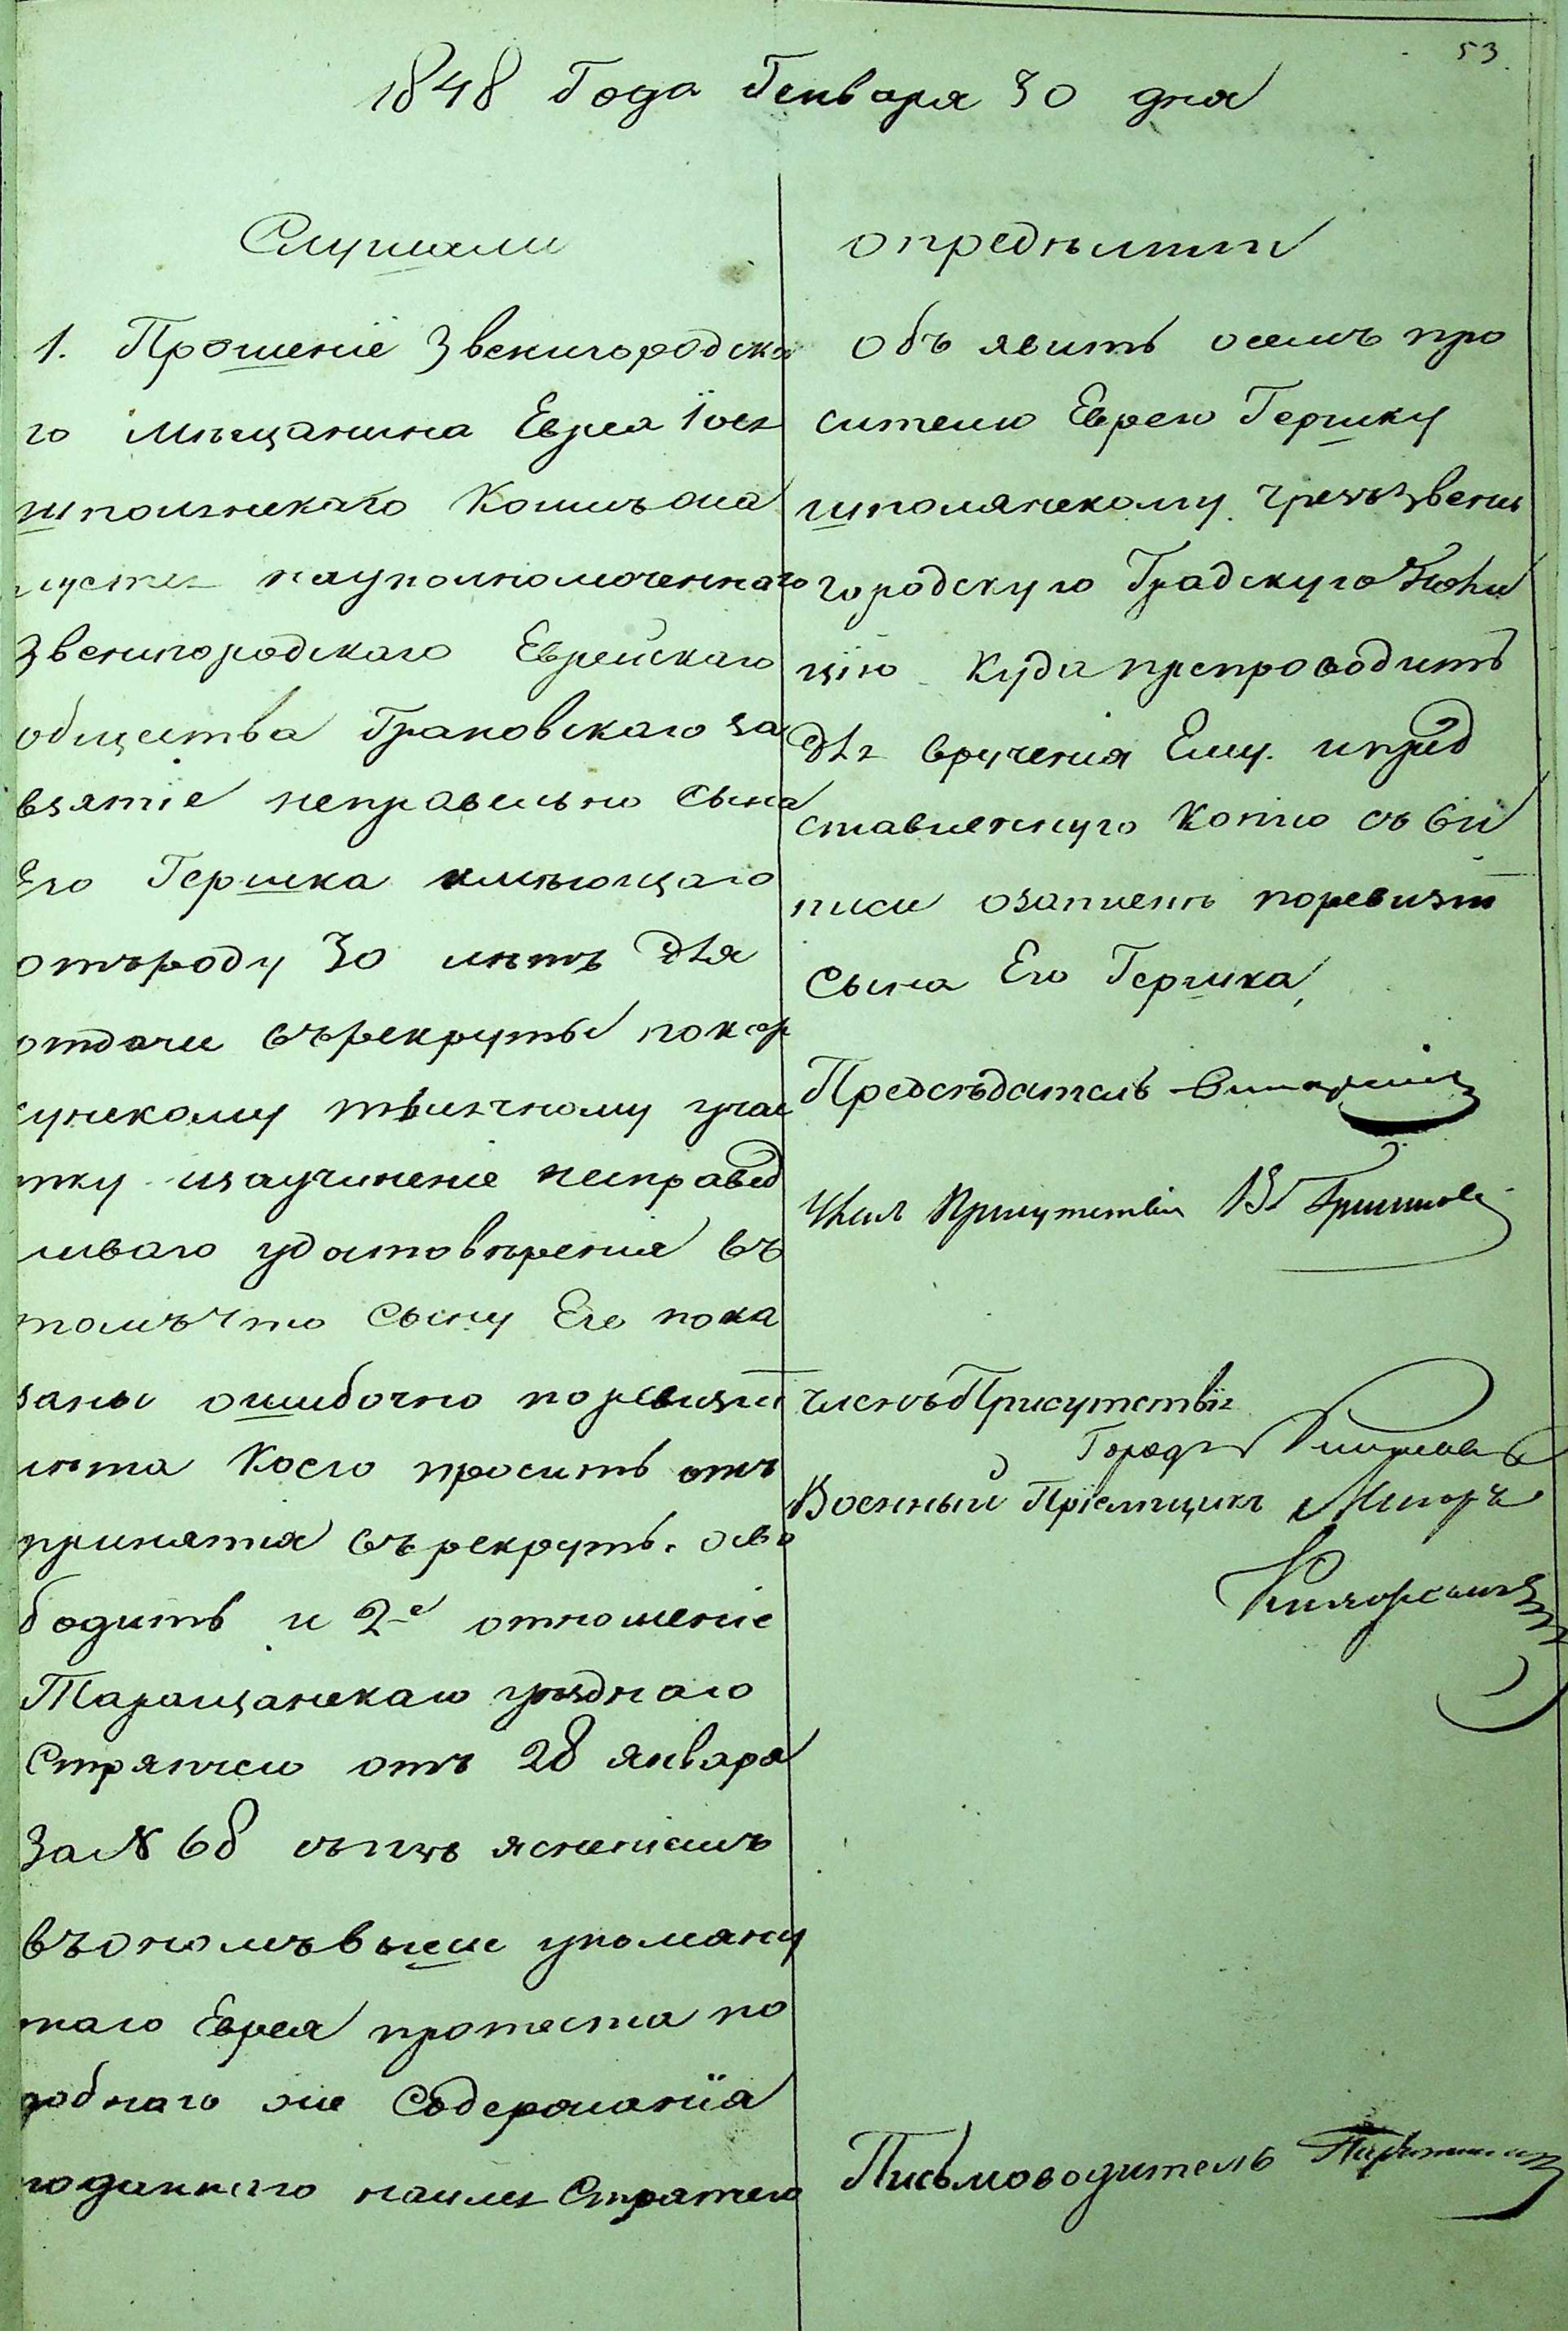 53
1848 Года Генваря 30 дня
Слушали
1. Прошеніе Звенигородска
го Мѣщанина Еврея Іося
шполянскаго Коимъ она
науполномоченнаго
Звенигородскаго Еврейскаго
общества Грановскаго за
взятіе неправельно Сына
Его Гершка имѣющаго
отъроду 30 лѣтъ для
отдачи върекруты по кор
сунскому учас
тку изаучиненіе несправед
ливаго удостовѣренія въ
томъчто Сыну Его пока
заны ошибочно поревизіи
лѣта Коего проситъ отъ
принятія въ рекруты осво
бодить и 2е отношеніе
Таращанскаго уѣзднаго
Стряпчего отъ 28 января
За № 68 съизъясненіемъ
въономъвыше упомяну
таго Еврея протеста по
добнаго же Содержанія
поданнаго наимя Стряпчего
опредѣлили
Объявить осемъ про
сителю Еврею Гершку
шполянскому чрезъзвени
городскую Градскую Поли
цію Куда препроводить
для врученія Ему. ипред
ставленную Копію съ Ви
писи озаписѣ поревизіи
Сына Его Гершка,
Предсѣдатель
Член Присутствія
членъ Присутствія
Город
Военный Пріемщикъ Маіоръ
Письмоводитель